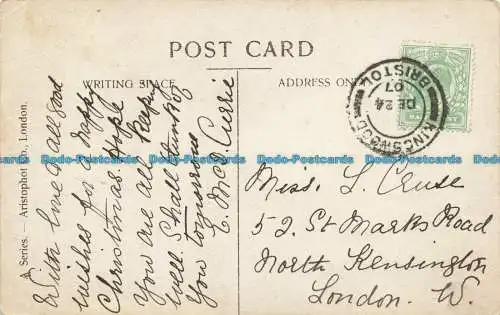 POST CARD
WRITING SPACE
ADDRESS ONLY
Series. — Aristophot Co., London.
With love & all good
wishes for a happy
Christmas. Hope
you are all keeping
well. Shall think of
you tomorrow
E. McD. Currie
KINGSWOOD
BRISTOL
DE 24
07
Miss. L. Cruse
52 St Marks Road
North Kensington
London. W.
Dodo-Postcards Dodo-Postcards Dodo-Postcards Dodo-Postcards Dodo-Postcards Dodo-Postcards